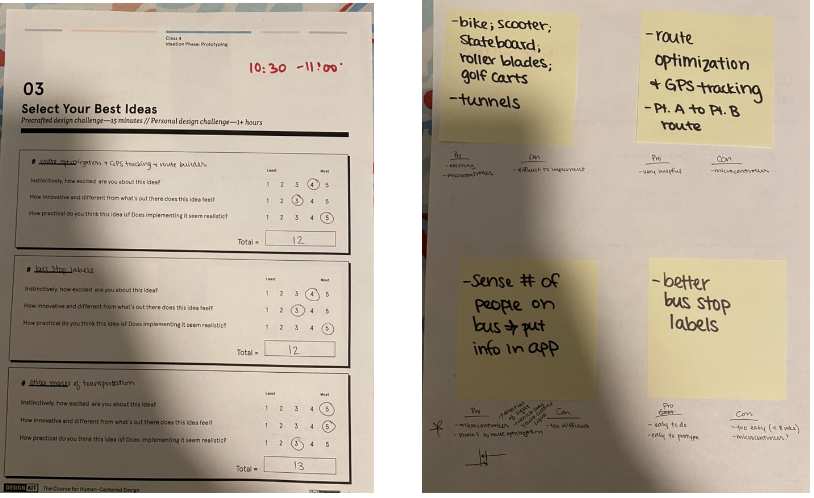 Class 4
Ideation Phase: Prototyping
10:30 - 11:00
03
Select Your Best Ideas
Precrafted design challenge—15 minutes // Personal design challenge—1+ hours
# route optimization + GPS tracking + route builder
Least Most
Instinctively, how excited are you about this idea? 1 2 3 4 5
How innovative and different from what's out there does this idea feel? 1 2 3 4 5
How practical do you think this idea is? Does implementing it seem realistic? 1 2 3 4 5
Total = 12
# bus stop labels
Least Most
Instinctively, how excited are you about this idea? 1 2 3 4 5
How innovative and different from what's out there does this idea feel? 1 2 3 4 5
How practical do you think this idea is? Does implementing it seem realistic? 1 2 3 4 5
Total = 12
# other modes of transportation
Least Most
Instinctively, how excited are you about this idea? 1 2 3 4 5
How innovative and different from what's out there does this idea feel? 1 2 3 4 5
How practical do you think this idea is? Does implementing it seem realistic? 1 2 3 4 5
Total = 13
DESIGN KIT The Course for Human-Centered Design
-bike; scooter;
skateboard;
roller blades;
golf carts
-tunnels
Pro Con
- exciting
- microcontrollers
- difficult to implement
-route
optimization
+ GPS tracking
-Pt. A to Pt. B
route
Pro Con
- very helpful - microcontroller
-sense # of
people on
bus → put
info in app
Pro Con
- microcontrollers
- too difficult
-better
bus stop
labels
Pro Con
- easy to do
- easy to prototype
- too easy (<8 wks)
- microcontroller?